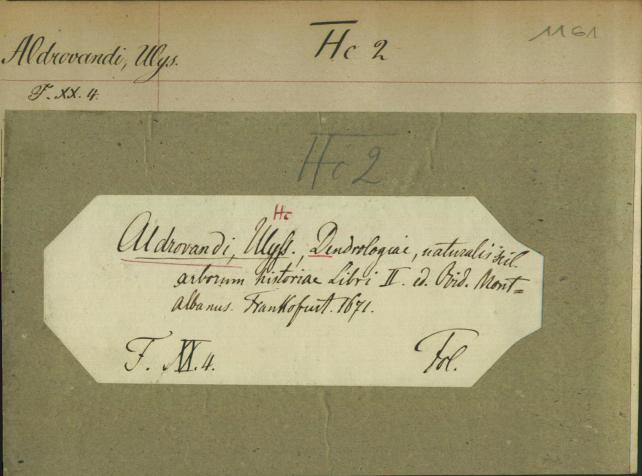 Aldrovandi, Ulys.
Hc 2
1161
F. XX. 4.
Hc 2
Hc
Aldrovandi, Ulyss., Dendrologiae, naturalis scil.
arborum historiae Libri II. ed. Ovid. Mont=
albanus. Frankofurt. 1671.
F. XX. 4.
Fol.